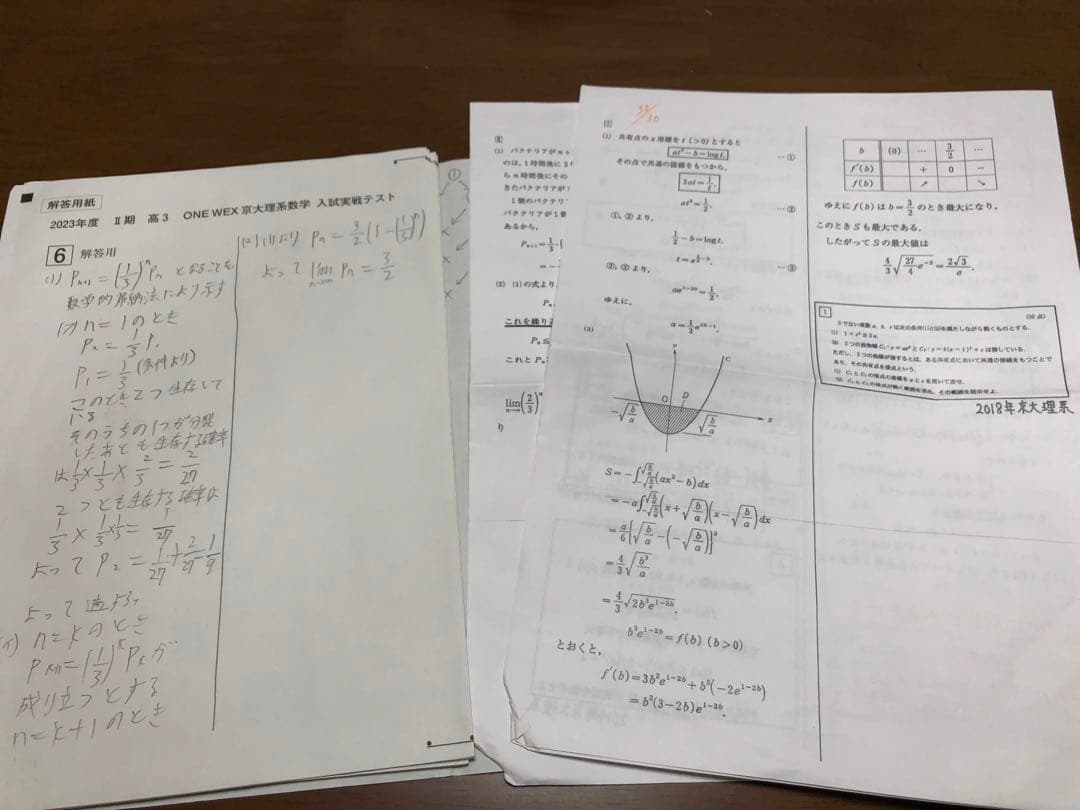 解答用紙
2023年度 Ⅱ期 高3 ONE WEX 京大理系数学 入試実戦テスト
6 解答用
(1) Pn+1 = (1/3)^n Pn となることを
数学的帰納法により示す
(ア) n=1のとき
P2 = 1/3 P1
P1 = 1/3 (条件より)
このとき2つ生存して
いる
そのうちの1つが分裂
したあとも生存する確率
は 1/3 × 1/3 × 2/3 = 2/27
2つとも生存する確率は
1/3 × 1/3 × 1/3 = 1/27
よって P2 = 1/27 + 2/27 = 1/9
よって適する
(イ) n=kのとき
Pk+1 = (1/3)^k Pk が
成り立つとする
n=k+1のとき
(2) (1)より Pn = 3/2 (1 - (1/3)^n)
よって lim n→∞ Pn = 3/2
(1) バクテリアが n+
のは、1時間後に2
ら n 時間後にその
きたバクテリアが
1個のバクテリ
バクテリアが1
Pn+1 = 1/3 ·
(2) (1)の式より、
これを繰り返
これと
lim n→∞ (2/3)^n
30/30
(1) 共有点の x 座標を t (>0) とすると
at² − b = log t. …①
その点で共通の接線をもつから、
2at = 1/t.
at² = 1/2. …②
①, ②より、
1/2 − b = log t.
t = e^(1/2−b). …③
②, ③より、
ae^(1−2b) = 1/2.
ゆえに、
a = 1/2 e^(2b−1).
(2)
y
C
O
D
x
−√(b/a)
√(b/a)
S = −∫_{−√(b/a)}^{√(b/a)} (ax² − b) dx
= −a∫_{−√(b/a)}^{√(b/a)} (x + √(b/a))(x − √(b/a)) dx
= a/6 {√(b/a) − (−√(b/a))}³
= 4/3 √(b³/a)
= 4/3 √(2b³e^(1−2b)).
b³e^(1−2b) = f(b) (b > 0)
とおくと、
f′(b) = 3b²e^(1−2b) + b³(−2e^(1−2b))
= b²(3−2b)e^(1−2b).
b (0) … 3/2 …
f′(b) + 0 −
f(b) ↗ ↘
ゆえに f(b) は b = 3/2 のとき最大になり、
このとき S も最大である。
したがって S の最大値は
4/3 √(27/4 e^(−2)) = 2√3/e.
1 (30点)
0でない実数 a, b, c は次の条件(i)と(ii)を満たしながら動くものとする。
(i) 1+c² ≦ 2a.
(ii) 2つの放物線 C₁: y=ax² と C₂: y=b(x−1)²+c は接している。
ただし、2つの曲線が接するとは、ある共有点において共通の接線をもつことで
あり、その共有点を接点という。
(1) C₁ と C₂ の接点の座標を a と c を用いて表せ。
(2) C₁ と C₂ の接点が動く範囲を求め、その範囲を図示せよ。
2018年京大理系